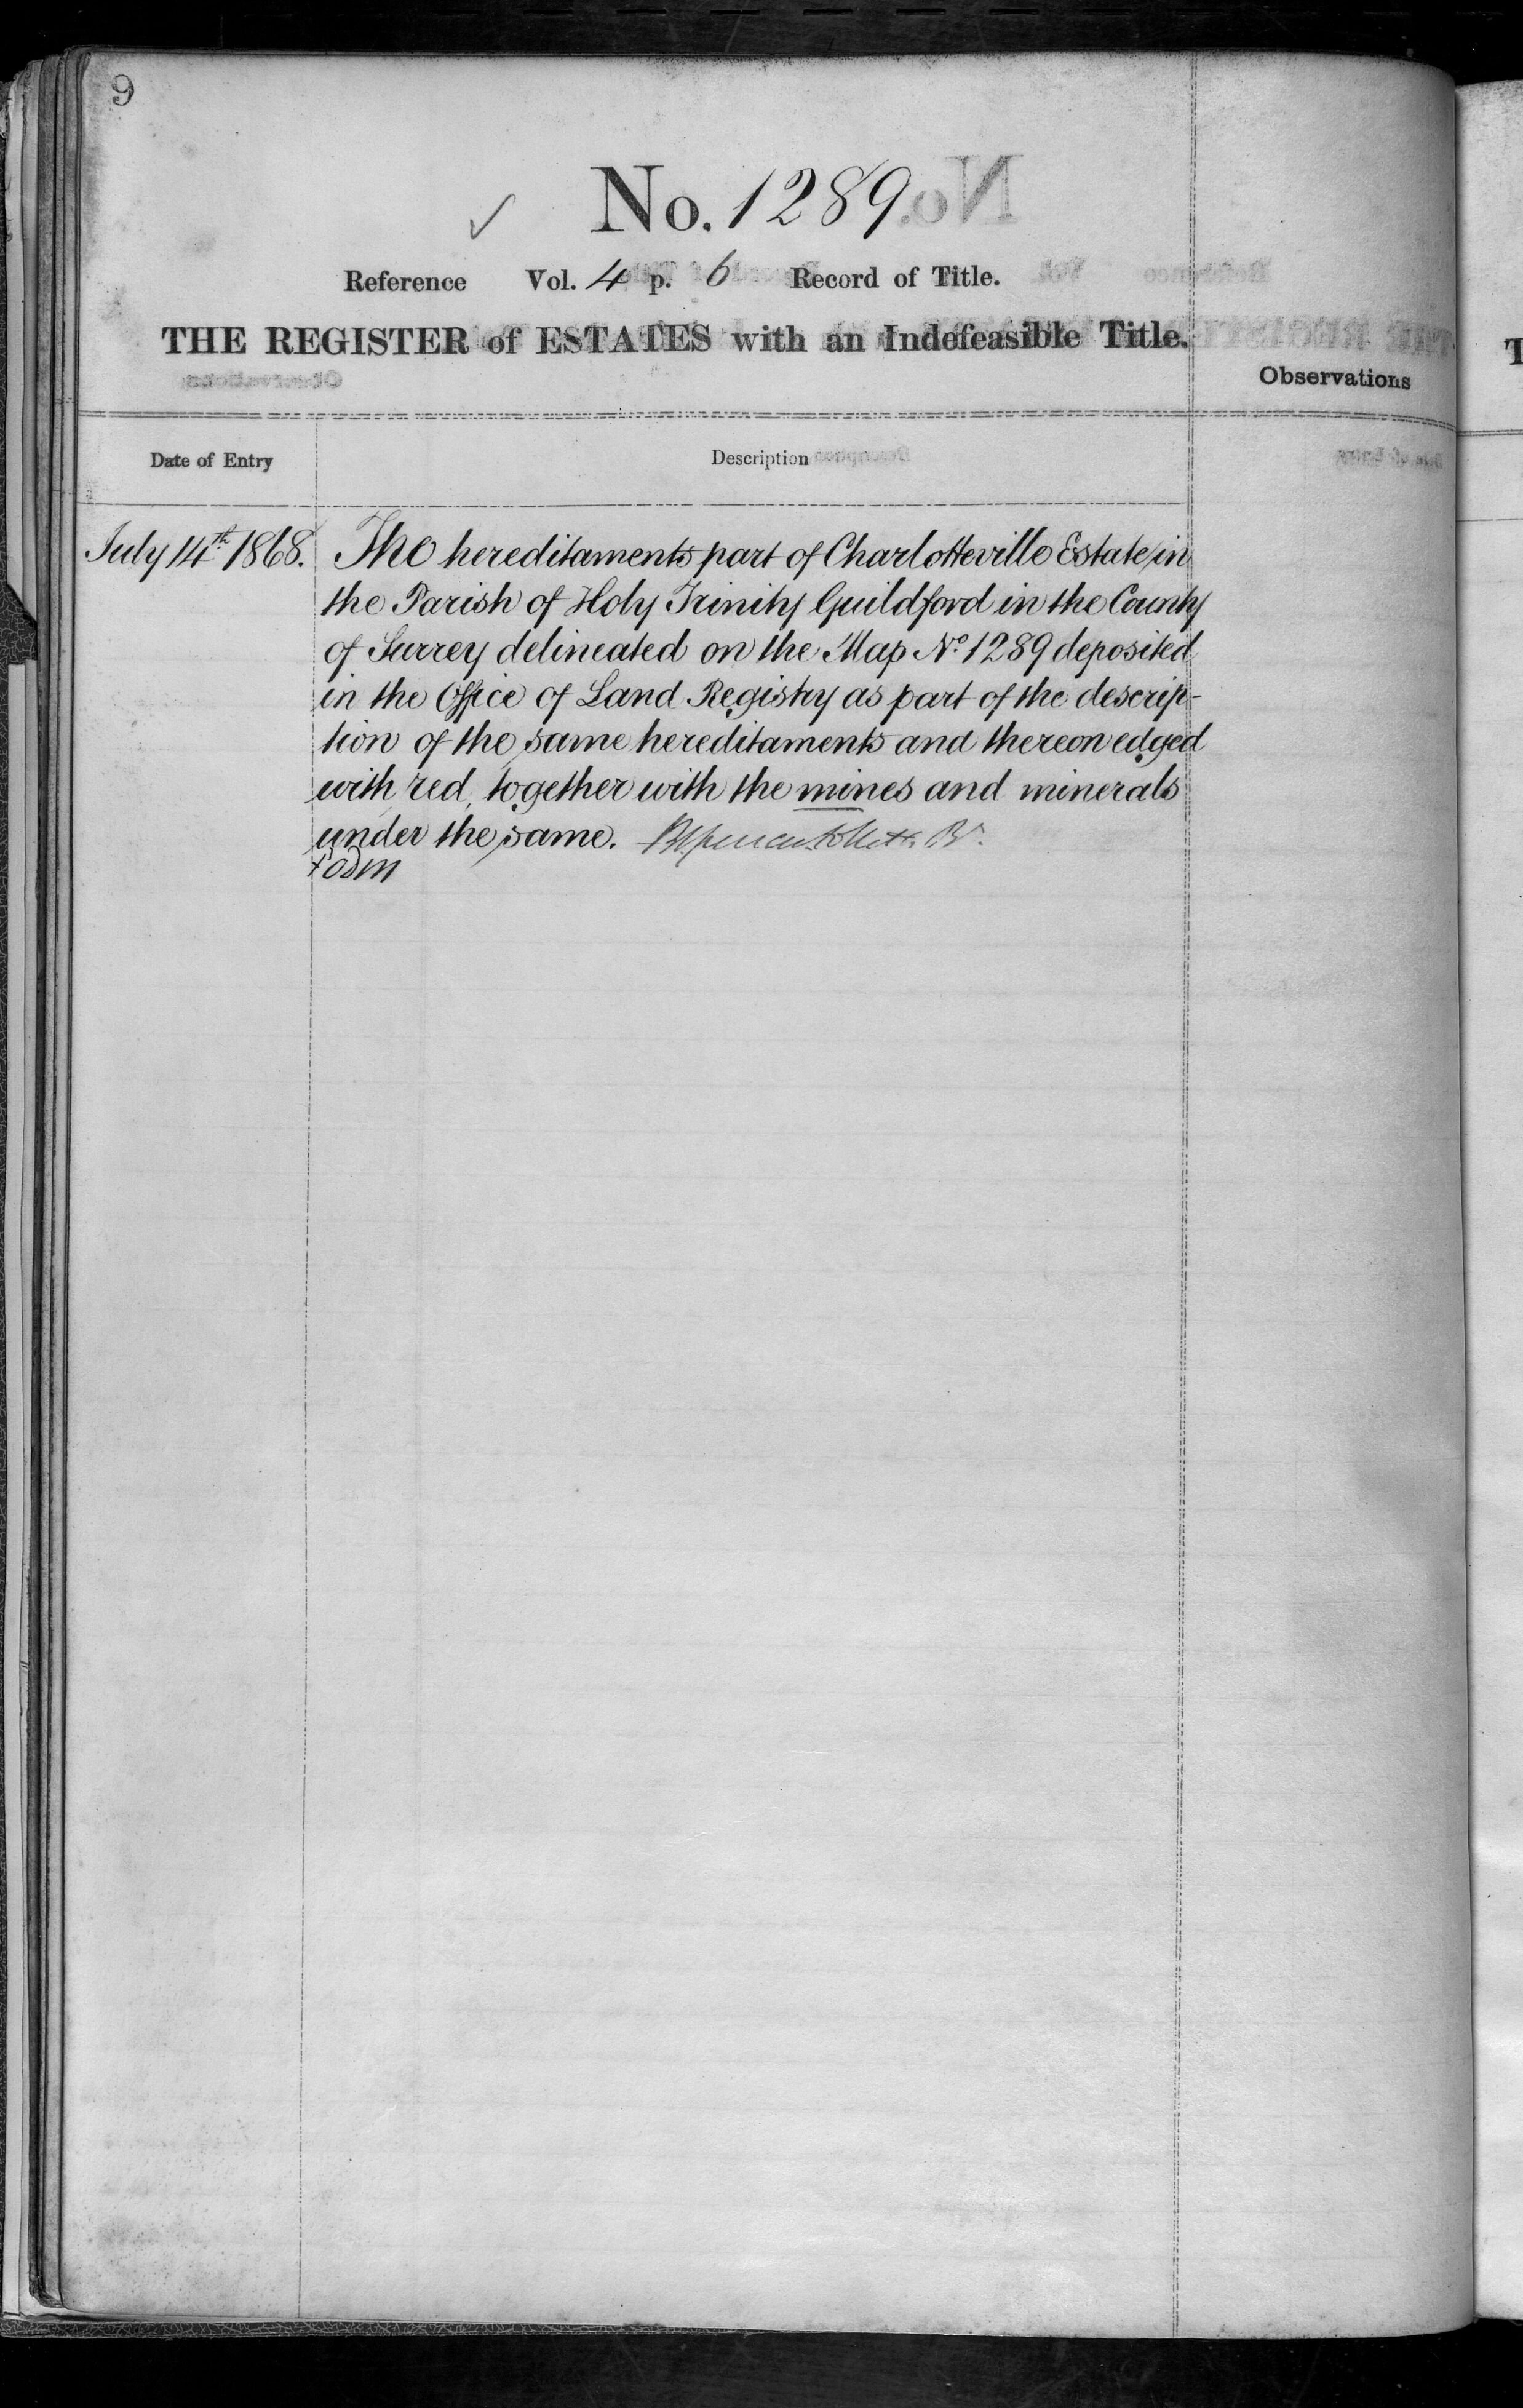 9
No. 1289
Reference Vol. 4 p. 6 Record of Title.
THE REGISTER of ESTATES with an Indefeasible Title.
Observations
Date of Entry Description
July 14th 1868. The hereditaments part of Charlotteville Estate in
the Parish of Holy Trinity Guildford in the County
of Surrey delineated on the Map No. 1289 deposited
in the Office of Land Registry as part of the descrip-
tion of the same hereditaments and thereon edged
with red, together with the mines and minerals
under the same.